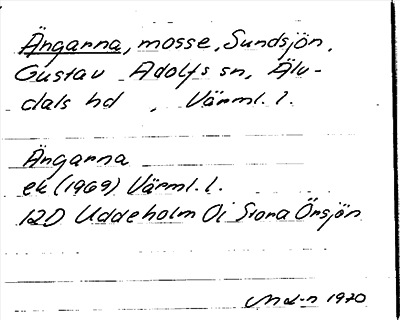 Ängarna, mosse, Sundsjön,
Gustav Adolfs sn, Älv-
dals hd, Värml. l.
Ängarna
ek (1969) Värml. l.
12D Uddeholm 0i Stora Örsjön
1970